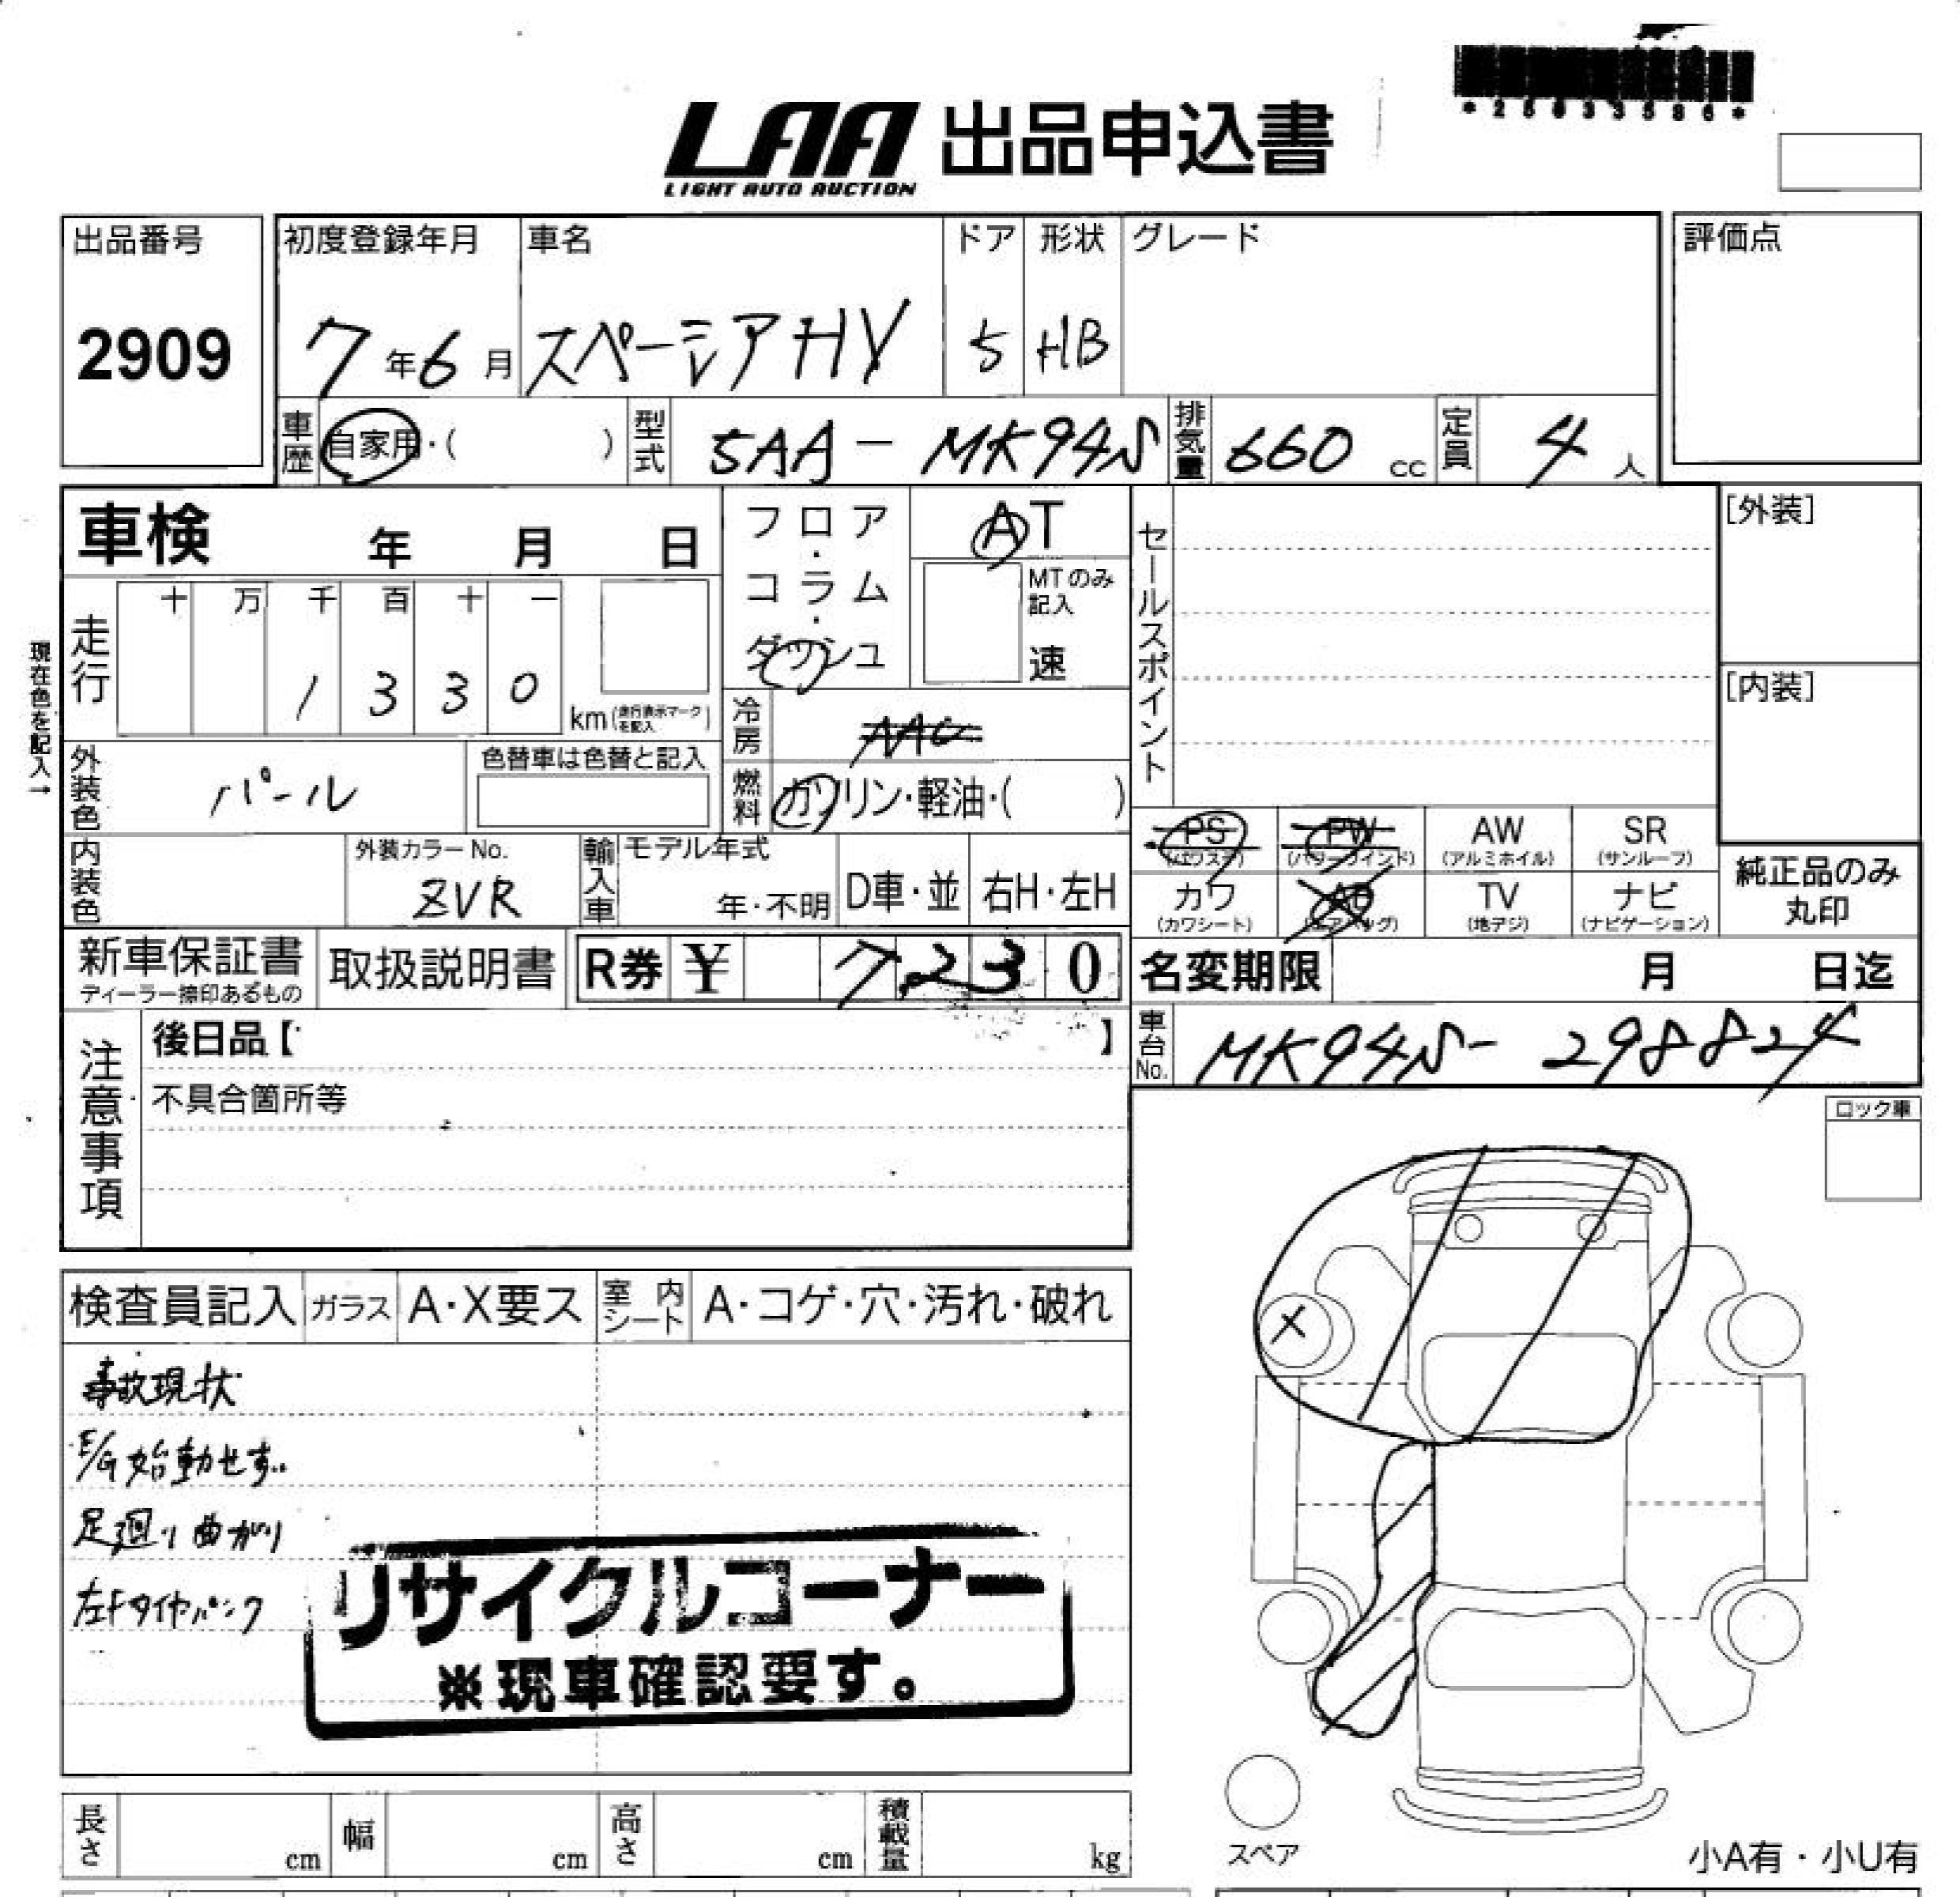 *25033586*
LAA 出品申込書
LIGHT AUTO AUCTION
出品番号 初度登録年月 車名 ドア 形状 グレード 評価点
2909 7年6月 スペーシアHV 5 HB
車歴 自家用・( ) 型式 5AA-MK94S 排気量 660 cc 定員 4人
車検 年 月 日 フロア・コラム・ダッシュ AT セールスポイント [外装]
MTのみ記入
速
現在色を記入→
走行 十 万 千 百 十 一
1 3 3 0 km(走行表示マークを記入)
冷房 AAC
[内装]
外装色 パール 色替車は色替と記入 燃料 ガソリン・軽油・( )
内装色 外装カラーNo. ZVR 輸入車 モデル年式 年・不明 D車・並 右H・左H
PS (パワステ) PW (パワーウインド) AW (アルミホイル) SR (サンルーフ)
カワ (カワシート) AB (エアバッグ) TV (地デジ) ナビ (ナビゲーション) 純正品のみ丸印
新車保証書 ディーラー捺印あるもの 取扱説明書 R券 ¥ 7230 名変期限 月 日迄
注意事項 後日品【 】
車台No. MK94S-298824
不具合箇所等
ロック車
検査員記入 ガラス A・X要ス 室内シート A・コゲ・穴・汚れ・破れ
事故現状
E/G始動せず。
足廻り曲がり
左Fタイヤパンク
リサイクルコーナー
※現車確認要す。
X
長さ cm 幅 cm 高さ cm 積載量 kg
スペア
小A有・小U有